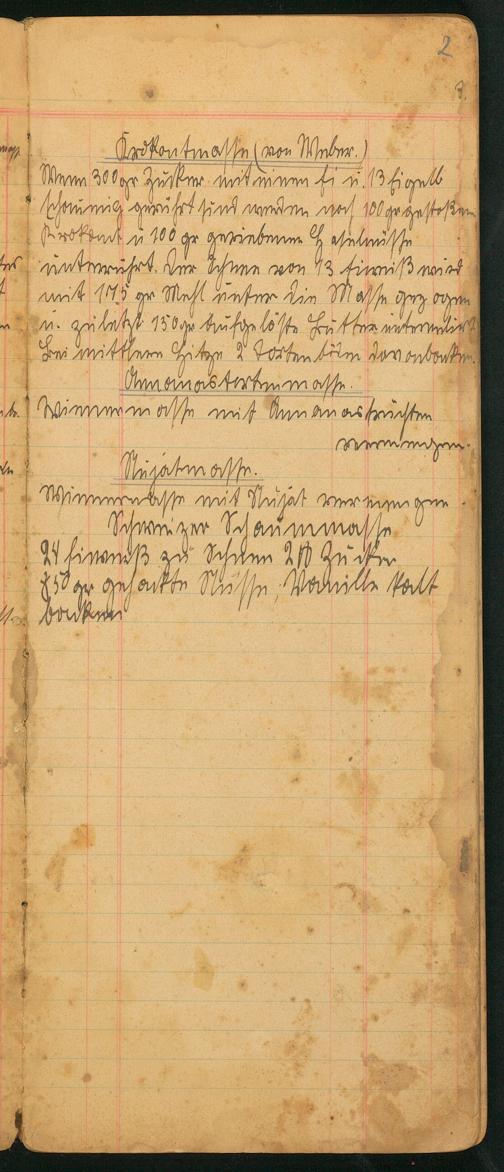 2
Krokantmasse (von Weber.)
Wenn 300 gr Zucker mit einem Ei u. 13 Eigelb
schaumig gerührt sind werden noch 100 gr gestoßenen
Krokant u 100 gr geriebene Haselnüsse
unterrührt. Der Schnee von 13 Eiweiß wird
mit 175 gr Mehl unter die Masse gezogen
u. zuletzt 150 gr aufgelöste Butter
Bei mittlere Hitze 2 Torten davon backen.
Annanastortenmasse.
Wienermasse mit Annanasfrüchten
vermengen.
Nujatmasse.
Wienermasse mit Nujat vermengen.
Schweizer Schaummasse
24 Eiweiß zu Schnee Zucker
gr gehackte Nüsse, Vanille kalt
backen